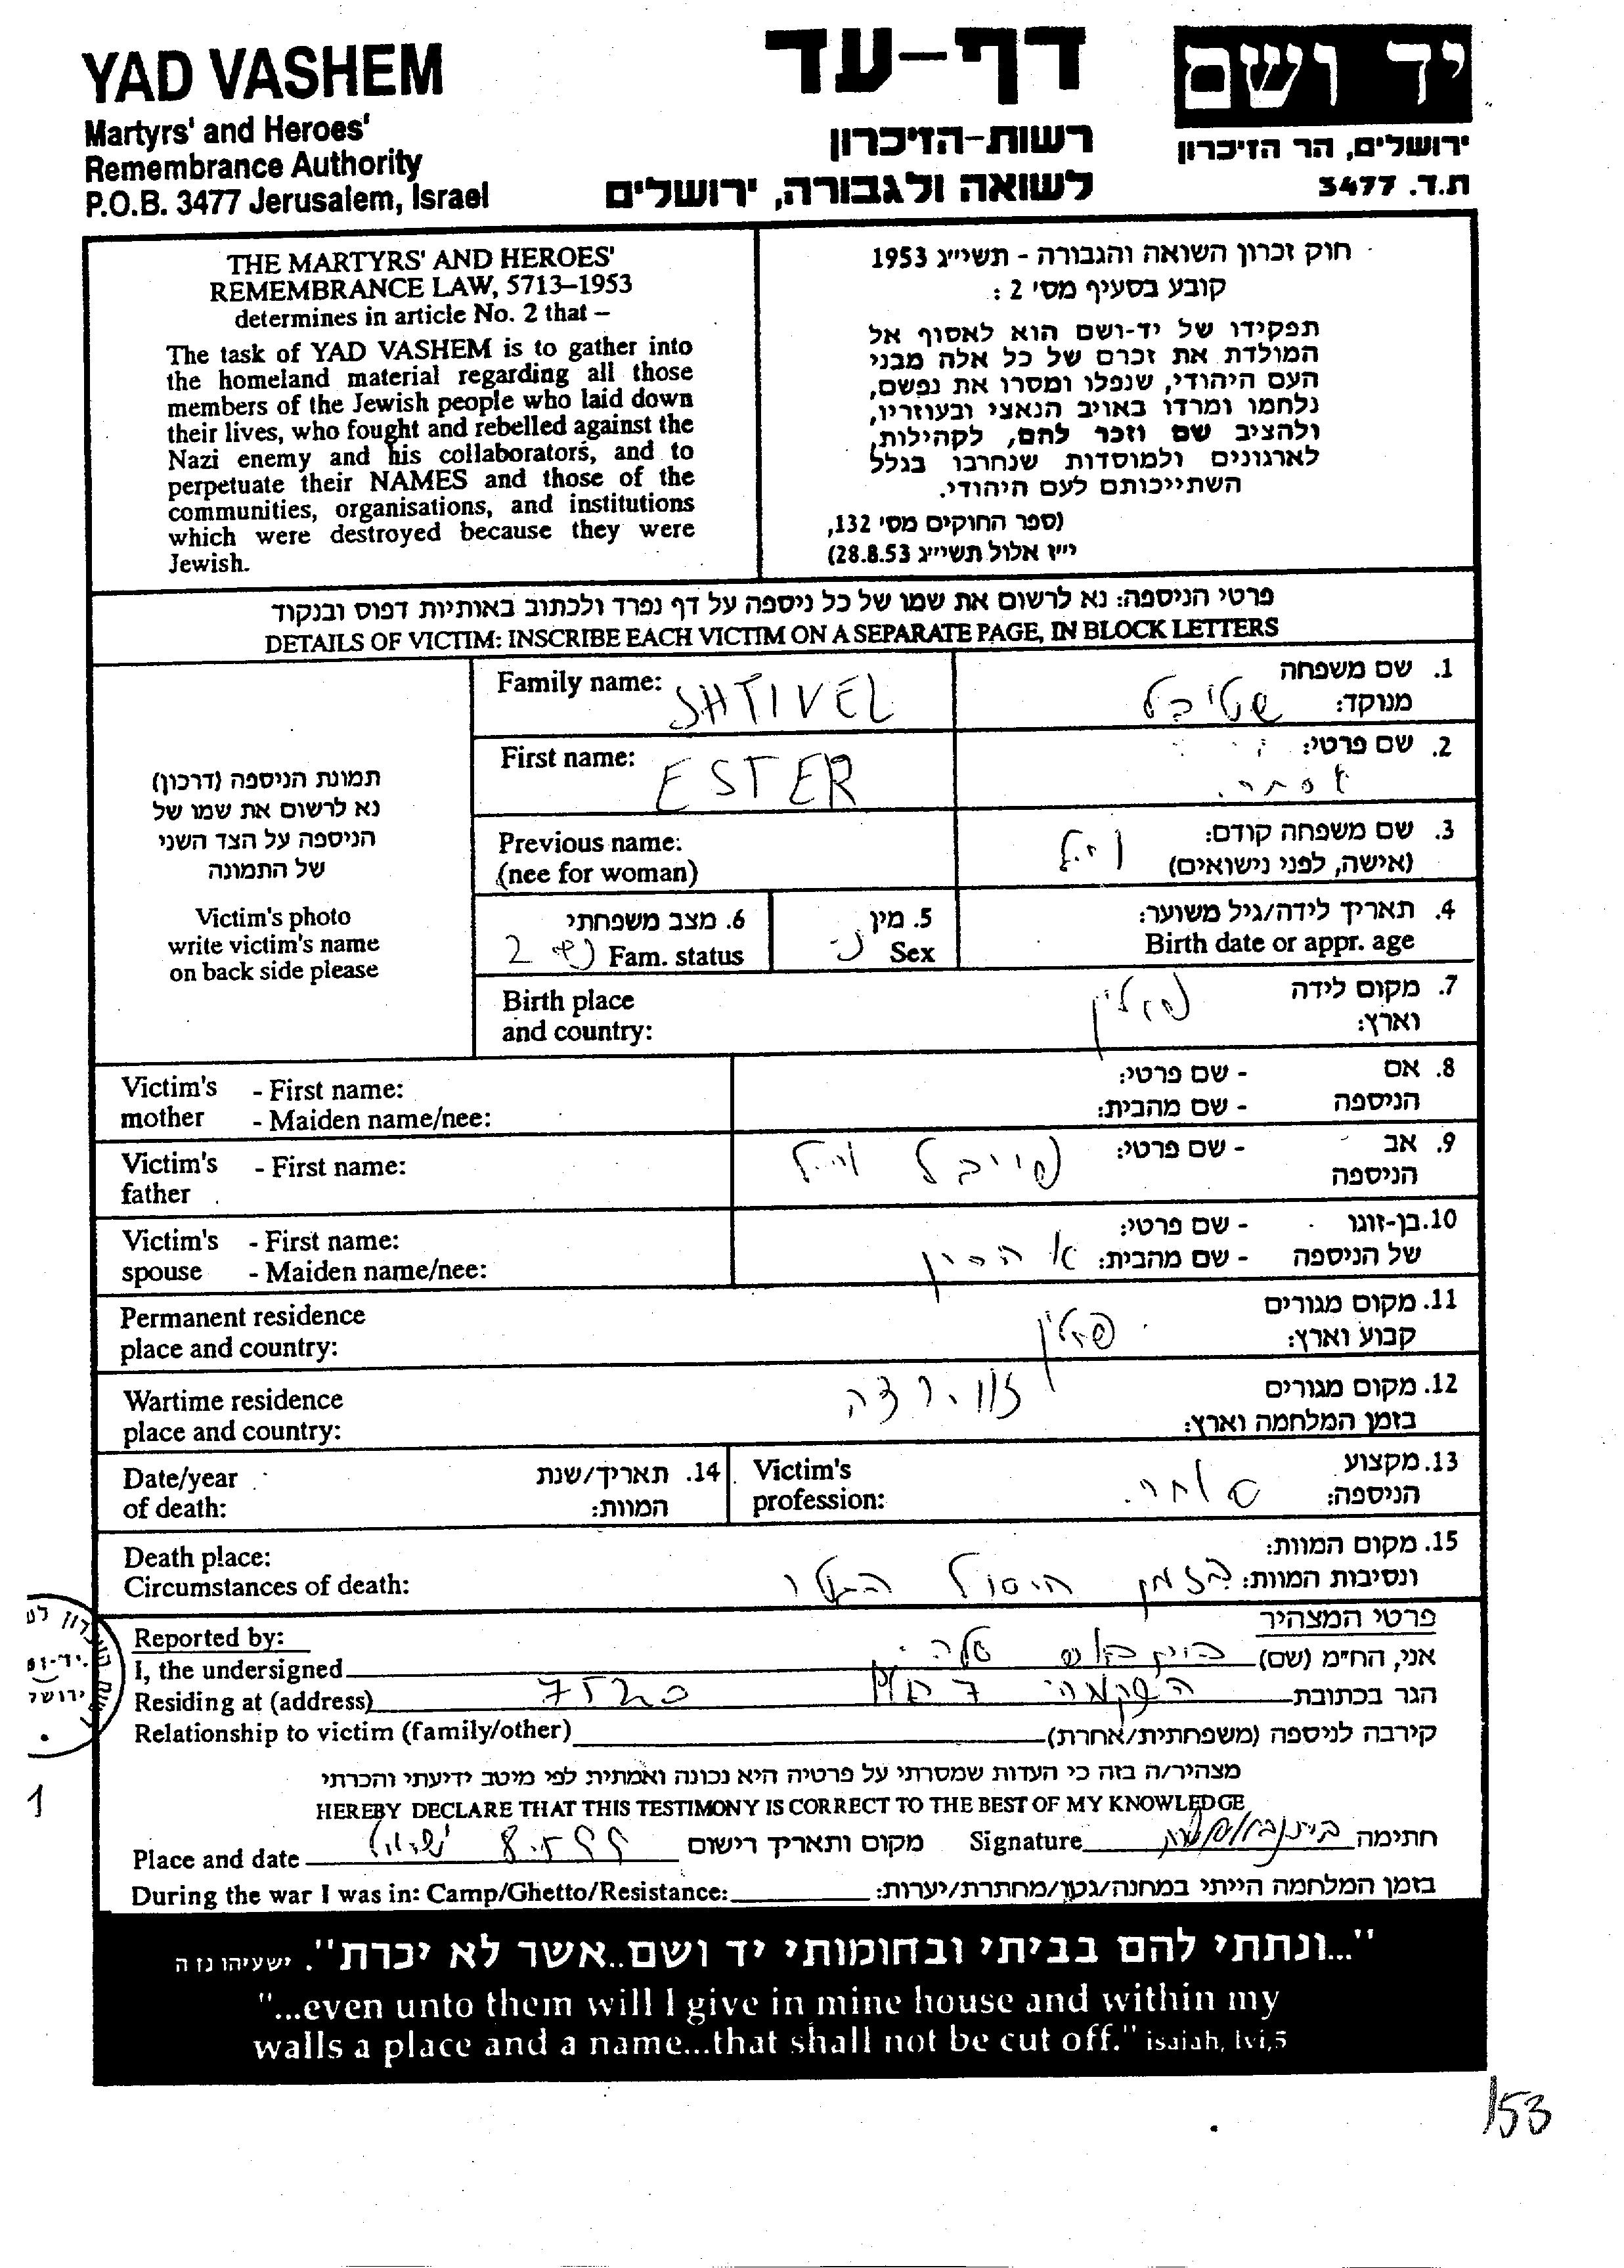 YAD VASHEM
Martyrs' and Heroes'
Remembrance Authority
P.O.B. 3477 Jerusalem, Israel
דף-עד
רשות-הזיכרון
לשואה ולגבורה, ירושלים
יד ושם
ירושלים, הר הזיכרון
ת.ד. 3477
THE MARTYRS' AND HEROES'
REMEMBRANCE LAW, 5713–1953
determines in article No. 2 that –
The task of YAD VASHEM is to gather into
the homeland material regarding all those
members of the Jewish people who laid down
their lives, who fought and rebelled against the
Nazi enemy and his collaborators, and to
perpetuate their NAMES and those of the
communities, organisations, and institutions
which were destroyed because they were
Jewish.
חוק זכרון השואה והגבורה - תשי״ג 1953
קובע בסעיף מס׳ 2 :
תפקידו של יד-ושם הוא לאסוף אל
המולדת את זכרם של כל אלה מבני
העם היהודי, שנפלו ומסרו את נפשם,
נלחמו ומרדו באויב הנאצי ובעוזריו,
ולהציב שם וזכר להם, לקהילות,
לארגונים ולמוסדות שנחרבו בגלל
השתייכותם לעם היהודי.
(ספר החוקים מס׳ 132,
י״ז אלול תשי״ג 28.8.53)
פרטי הניספה: נא לרשום את שמו של כל ניספה על דף נפרד ולכתוב באותיות דפוס ובנקוד
DETAILS OF VICTIM: INSCRIBE EACH VICTIM ON A SEPARATE PAGE, IN BLOCK LETTERS
תמונת הניספה (דרכון)
נא לרשום את שמו של
הניספה על הצד השני
של התמונה
Victim's photo
write victim's name
on back side please
Family name: SHTIVEL
1. שם משפחה
מנוקד: שטיבל
First name: ESTER
2. שם פרטי:
אסתר.
Previous name:
(nee for woman)
3. שם משפחה קודם:
(אישה, לפני נישואים)
6. מצב משפחתי
Fam. status
5. מין
Sex נ
4. תאריך לידה/גיל משוער:
Birth date or appr. age
Birth place
and country:
7. מקום לידה
וארץ: פולין
Victim's mother
- First name:
- Maiden name/nee:
8. אם הניספה
- שם פרטי:
- שם מהבית:
Victim's father
- First name:
9. אב הניספה
- שם פרטי: פייבל
Victim's spouse
- First name:
- Maiden name/nee:
10. בן-זוגו של הניספה
- שם פרטי:
- שם מהבית: אהרון
Permanent residence
place and country:
11. מקום מגורים
קבוע וארץ: פולין
Wartime residence
place and country:
12. מקום מגורים
בזמן המלחמה וארץ:
Date/year
of death:
14. תאריך/שנת
המוות:
Victim's
profession:
13. מקצוע
הניספה: סוחר.
Death place:
Circumstances of death:
15. מקום המוות:
ונסיבות המוות: בזמן חיסול הגטו
Reported by:
פרטי המצהיר
I, the undersigned
אני, הח״מ (שם)
Residing at (address)
הגר בכתובת השקמה 7
Relationship to victim (family/other)
קירבה לניספה (משפחתית/אחרת)
מצהיר/ה בזה כי העדות שמסרתי על פרטיה היא נכונה ואמתית לפי מיטב ידיעתי והכרתי
HEREBY DECLARE THAT THIS TESTIMONY IS CORRECT TO THE BEST OF MY KNOWLEDGE
Place and date 8.5.99 מקום ותאריך רישום
Signature חתימה
During the war I was in: Camp/Ghetto/Resistance:
בזמן המלחמה הייתי במחנה/גטו/מחתרת/יערות:
"...ונתתי להם בביתי ובחומותי יד ושם..אשר לא יכרת". ישעיהו נו ה
"...even unto them will I give in mine house and within my
walls a place and a name...that shall not be cut off." isaiah, lvi,5
1
153